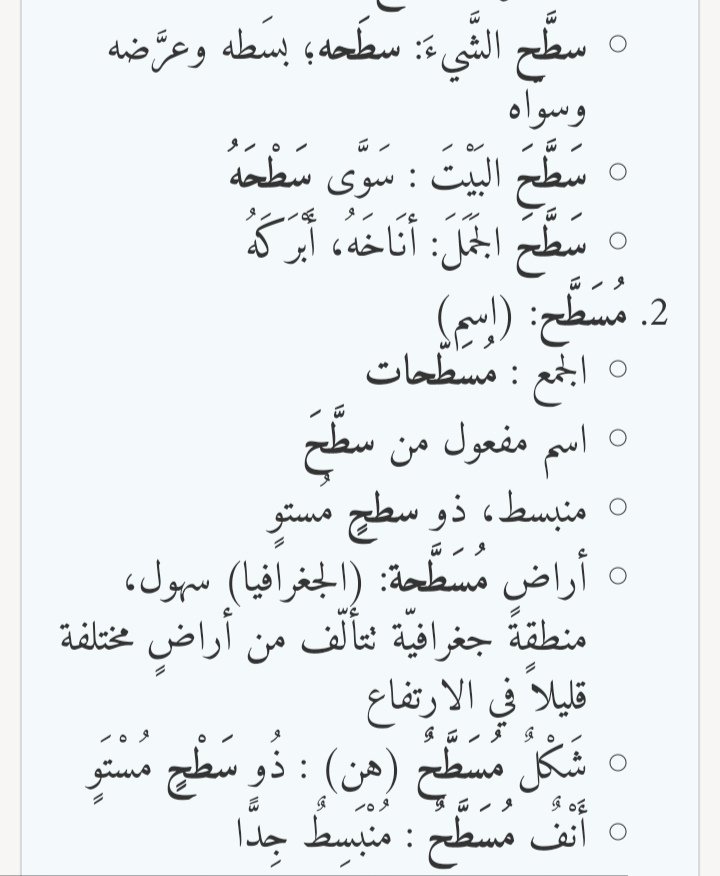 سطَّح الشَّيءَ: سطَحه؛ بسَطه وعرَّضه
وسوّاه
سَطَّحَ البَيْتَ : سَوَّى سَطْحَهُ
سَطَّحَ الجَمَلَ: أَنَاخَهُ، أَبْرَكَهُ
2. مُسَطَّح: (اسم)
الجمع : مُسَطَّحات
اسم مفعول من سطَّحَ
منبسط، ذو سطحٍ مُستوٍ
أراضٍ مُسَطَّحة: (الجغرافيا) سهول،
منطقةٌ جغرافيّة تتألّف من أراضٍ مختلفة
قليلاً في الارتفاع
شَكْلٌ مُسَطَّحٌ (هن) : ذُو سَطْحٍ مُسْتَوٍ
أَنْفٌ مُسَطَّحٌ : مُنْبَسِطٌ جِدًّا